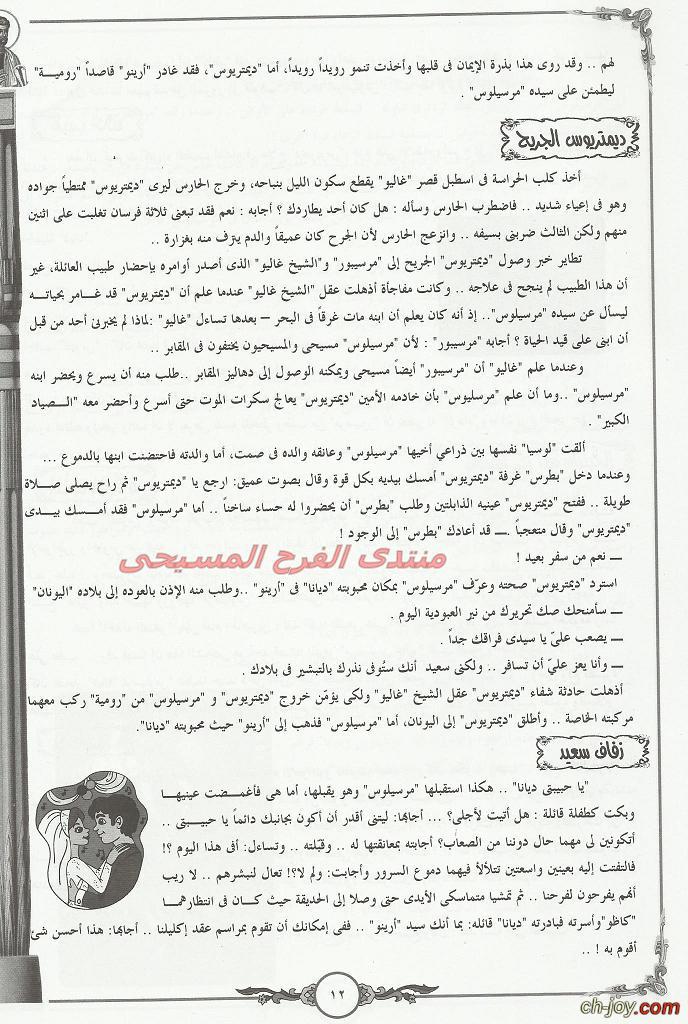 لهم .. وقد روى هذا بذرة الإيمان فى قلبها وأخذت تنمو رويداً رويداً، أما "ديمتريوس"، فقد غادر "أرينو" قاصداً "رومية"
ليطمئن على سيده "مرسيلوس" .
ديمتريوس الجريح
أخذ كلب الحراسة فى اسطبل قصر "غاليو" يقطع سكون الليل بنباحه، وخرج الحارس ليرى "ديمتريوس" ممتطياً جواده
وهو فى إعياء شديد .. فاضطرب الحارس وسأله : هل كان أحد يطاردك ؟ أجابه : نعم فقد تبعنى ثلاثة فرسان تغلبت على اثنين
منهم ولكن الثالث ضربنى بسيفه .. وانزعج الحارس لأن الجرح كان عميقاً والدم يترف منه بغزارة ..
تطاير خبر وصول "ديمتريوس" الجريح إلى "مرسيبور" و"الشيخ غاليو" الذى أصدر أوامره بإحضار طبيب العائلة، غير
أن هذا الطبيب لم ينجح فى علاجه .. وكانت مفاجأة أذهلت عقل "الشيخ غاليو" عندما علم أن "ديمتريوس" قد غامر بحياته
ليسأل عن سيده "مرسيلوس".. إذ أنه كان يعلم أن ابنه مات غرقاً فى البحر – بعدها تساءل "غاليو" :لماذا لم يخبرنى أحد من قبل
أن ابنى على قيد الحياة ؟ أجابه "مرسيبور" : لأن "مرسيلوس" مسيحى والمسيحيون يختفون فى المقابر ..
وعندما علم "غاليو" أن "مرسيبور" أيضاً مسيحى ويمكنه الوصول إلى دهاليز المقابر ..طلب منه أن يسرع ويحضر ابنه
"مرسيلوس" ..وما أن علم "مرسليوس" بأن خادمه الأمين "ديمتريوس" يعالج سكرات الموت حتى أسرع وأحضر معه "الصياد
الكبير" .
ألقت "لوسيا" نفسها بين ذراعي أخيها "مرسيلوس" وعانقه والده فى صمت، أما والدته فاحتضنت ابنها بالدموع ...
وعندما دخل "بطرس" غرفة "ديمتريوس" أمسك بيديه بكل قوة وقال بصوت عميق: ارجع يا "ديمتريوس" ثم راح يصلى صلاة
طويلة .. ففتح "ديمتريوس" عينيه الذابلتين وطلب "بطرس" أن يحضروا له حساء ساخناً .. أما "مرسيلوس" فقد أمسك بيدى
"ديمتريوس" وقال متعجباً .ـــ قد أعادك "بطرس" إلى الوجود !
ـــ نعم من سفر بعيد !
منتدى الفرح المسيحى
استرد "ديمتريوس" صحته وعرّف "مرسيلوس" بمكان محبوبته "ديانا" فى "أرينو" ..وطلب منه الإذن بالعوده إلى بلاده "اليونان"
ـــ سأمنحك صك تحريرك من نير العبودية اليوم .
ـــ يصعب علىّ يا سيدى فراقك جداً .
ـــ وأنا يعز علىّ أن تسافر .. ولكنى سعيد أنك ستُوفى نذرك بالتبشير فى بلادك .
أذهلت حادثة شفاء "ديمتريوس" عقل الشيخ "غاليو" ولكى يؤمّن خروج "ديمتريوس" و "مرسيلوس" من "رومية" ركب معهما
مركبته الخاصة .. وأطلق "ديمتريوس" إلى اليونان، أما "مرسيلوس" فذهب إلى "أرينو" حيث محبوبته "ديانا".
زفاف سعيد
"يا حبيبتى ديانا" .. هكذا استقبلها "مرسيلوس" وهو يقبلها، أما هى فأغمضت عينيها
وبكت كطفلة قائلة : هل أتيت لأجلى؟ ... أجابها: ليتنى أقدر أن أكون بجانبك دائماً يا حبيبتى ..
أتكونين لى مهما حال دوننا من الصعاب؟ أجابته بمعانقتها له .. وقبّلته .. وتساءل: أفى هذا اليوم ؟!
فالتفتت إليه بعينين واسعتين تتلألأ فيهما دموع السرور وأجابت: ولم لا؟! تعال لنبشرهم .. لا ريب
أنهم يفرحون لفرحنا .. ثم تمشيا متماسكى الأيدى حتى وصلا إلى الحديقة حيث كان فى انتظارهما
"كاظو"وأسرته فبادرته "ديانا" قائله: بما أنك سيد "أرينو" .. ففى إمكانك أن تقوم بمراسم عقد إكليلنا .. أجابها: هذا أحسن شئ
أقوم به ! ..
١٢
ch-joy.com